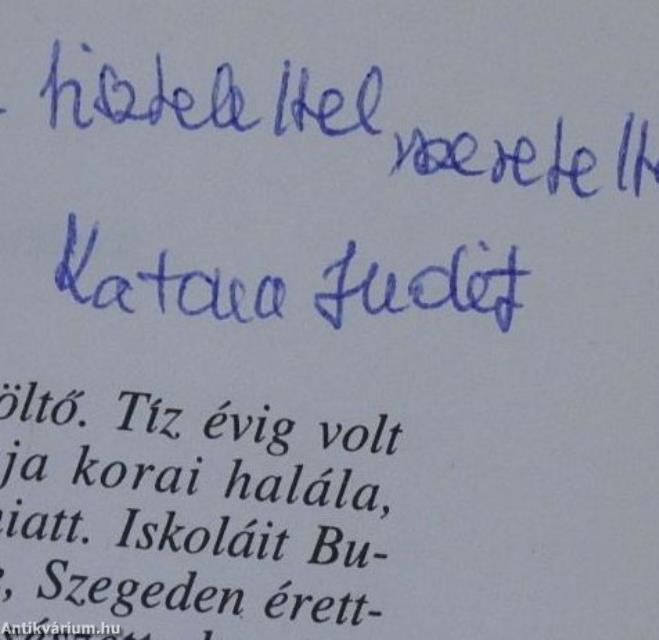 tisztelettel
szeretette
Katona Judit
öltő. Tíz évig volt
ja korai halála,
iatt. Iskoláit Bu-
, Szegeden érett-
Antikvárium.hu